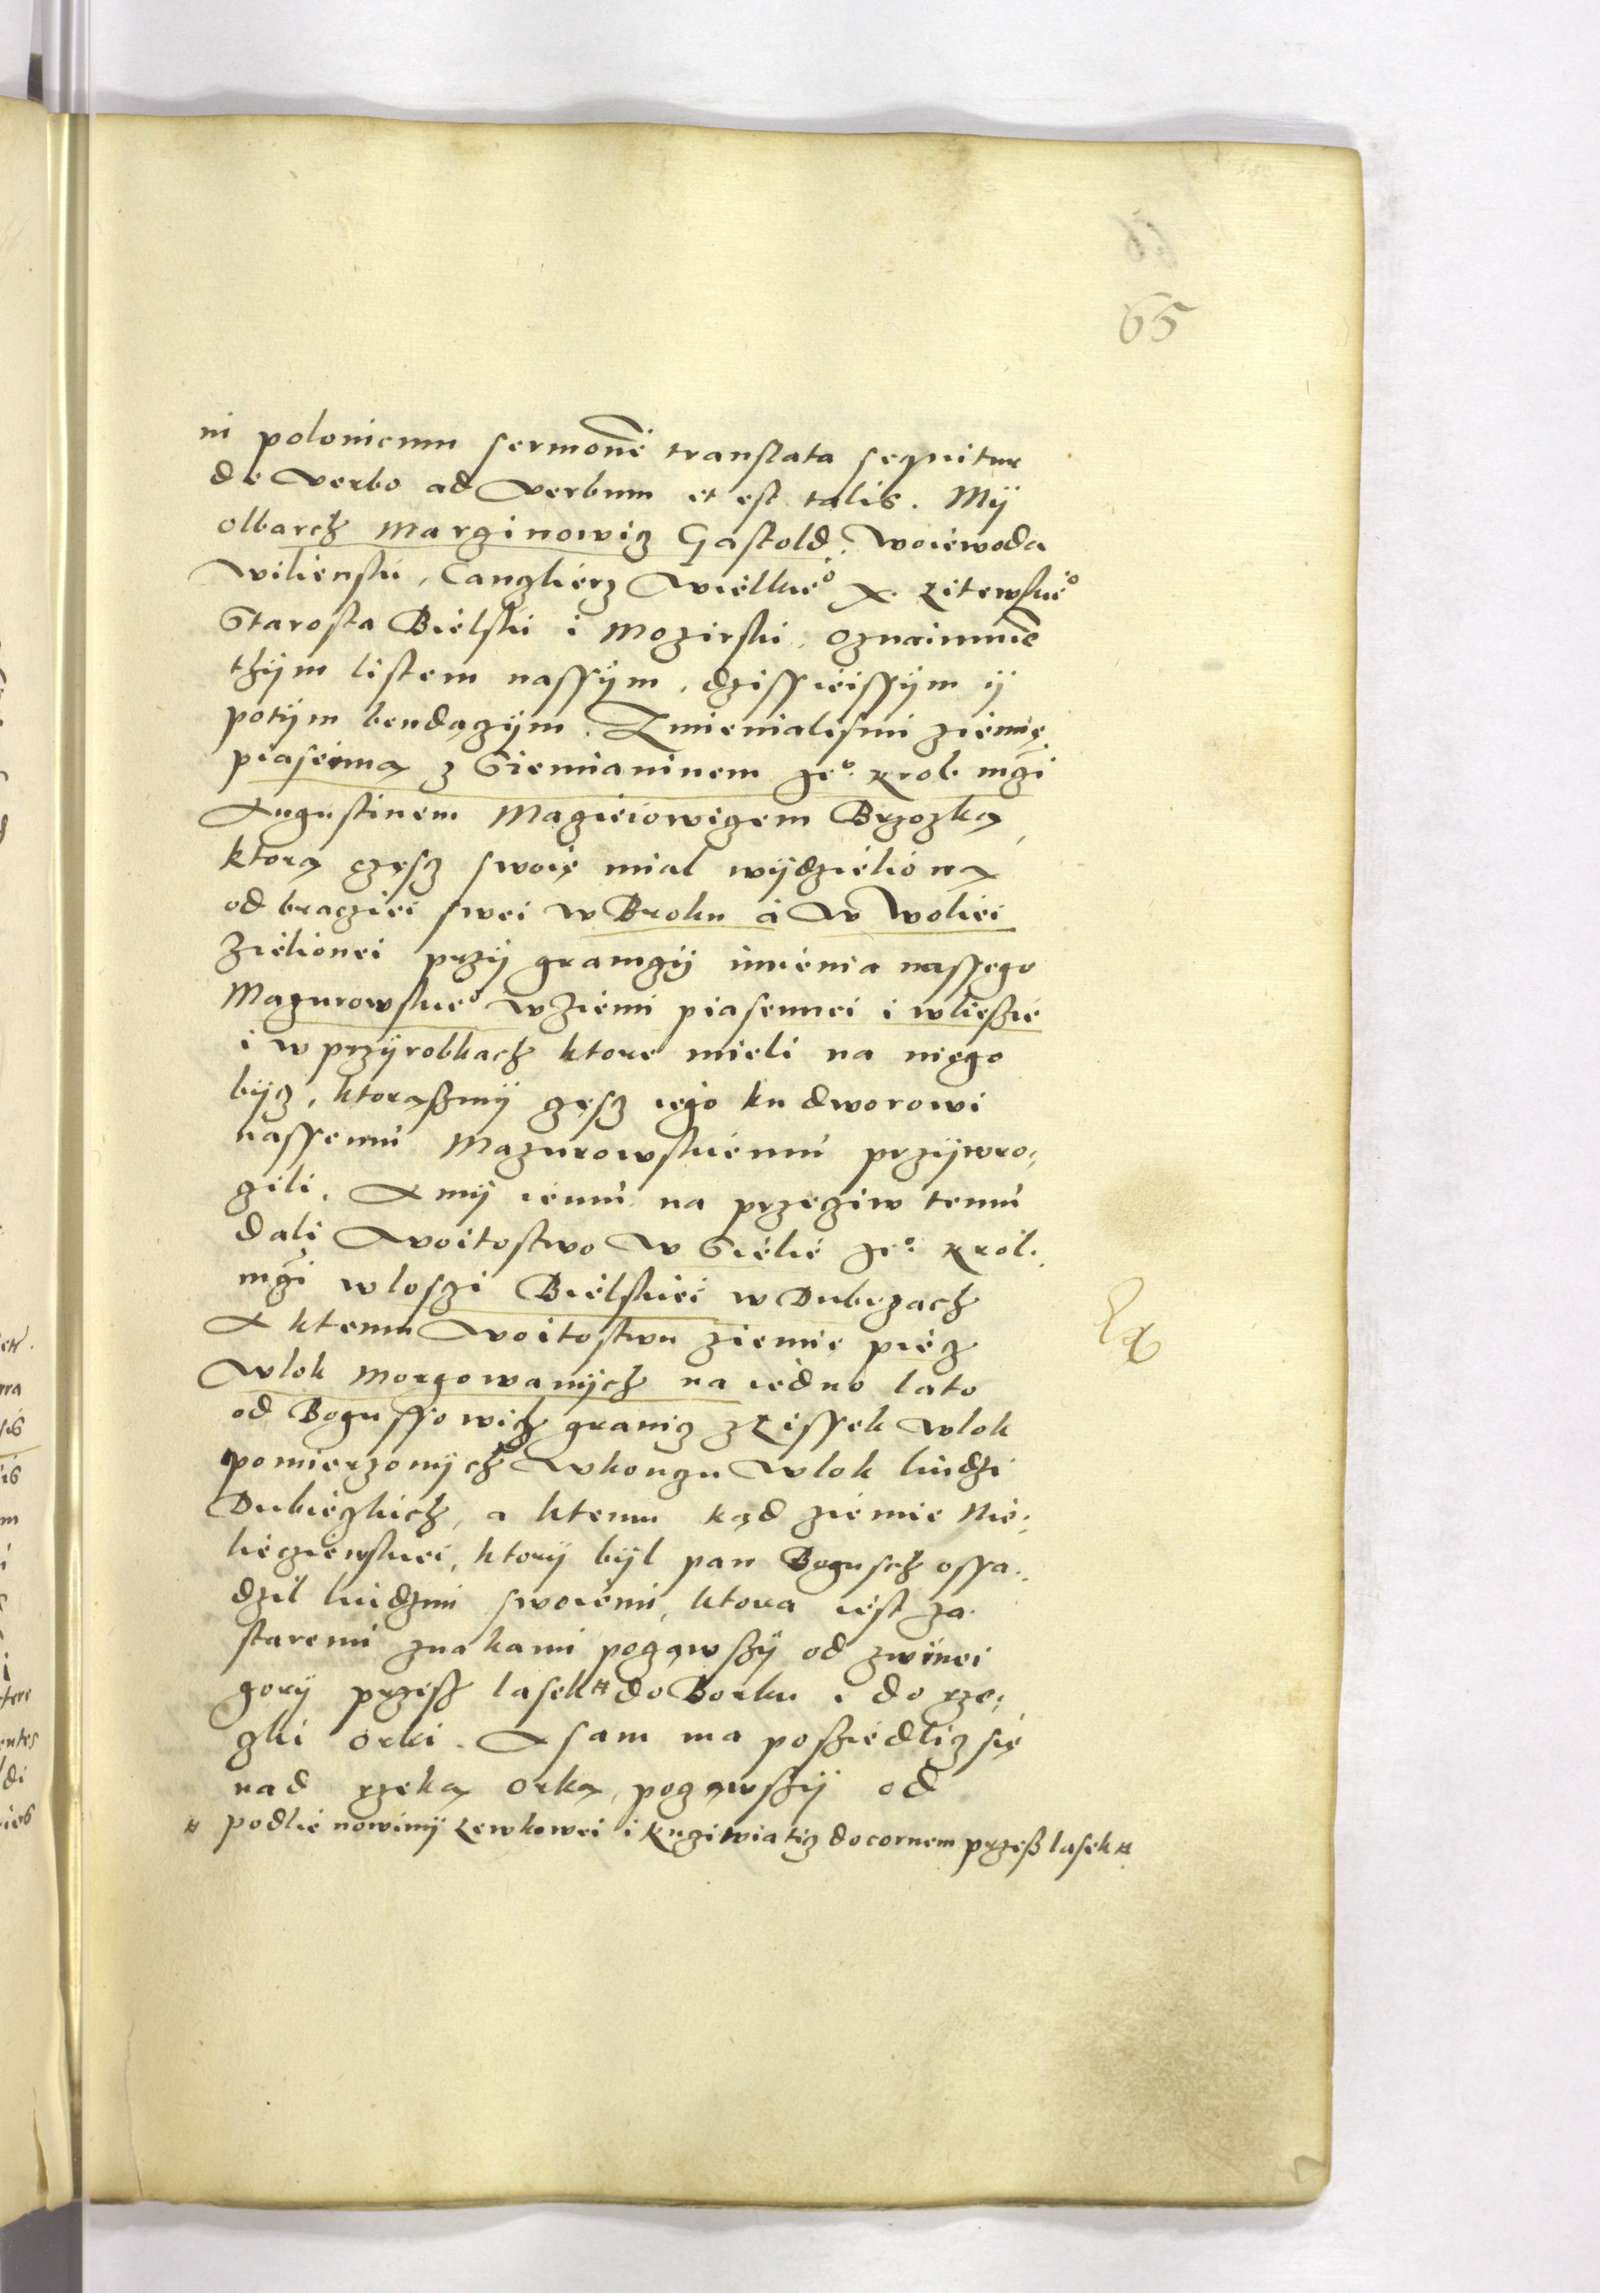 65
in polonicum sermonē translata sequitur
de verbo ad verbum et est talis. Mÿ
olbarch Marginowicz Gastold, Woiewoda
Wilienski, Canglierz Wielkieº X. Litewskieº
Starosta Bielski i Mozirski, oznaimuiē
thÿm listem nassÿm, dzissieissÿm ÿ
potÿm bendączÿm. Zmienialismi ziemię
piasecinną z Siemianinem jeº. Krol. mḡi
Augustinem Magieiowiczem Brzozką,
ktorą częscz swoię mial wÿdzielioną
od bracziei swei w Broku á w Woliei
Zielionei przÿ granigÿ imienia nassego
Mazurowskieº w ziemi piasecznei i w liesie
i w przÿrobkach ktore mieli na niego
bÿcz, ktorąszmÿ częscz iego ku dworowi
nassemu Mazurowskiemu przÿwro,
gili, A mÿ iemu na przeciw temu
dali Woitostwo w Sielie jeº. Krol.
mḡi wloszi Bielskiei w Dubczach
A ktemu Woitostwu ziemie piēcz
Wlok Morgowanÿch na iedno lato
od Bogussowicz granicz z Lissek wlok
pomierzonÿch w koncu wlok liudzi
Dubieckich, a ktemu kąd ziemie Nie,
lieczienskiei, ktorÿ bÿl pan Bogusch ossa,
dzil liudzmi swoiemi, ktora iest za
staremi znakami poczawszÿ od zwinei
gorÿ przesz lasek # do Borku i do rze,
gki orki. A sam ma poszedlicz się
nad rzeką Orką, poczawszÿ od
# podlie nowinÿ Lewkowei i Kuziwiaticz do cornem przesz lasek #